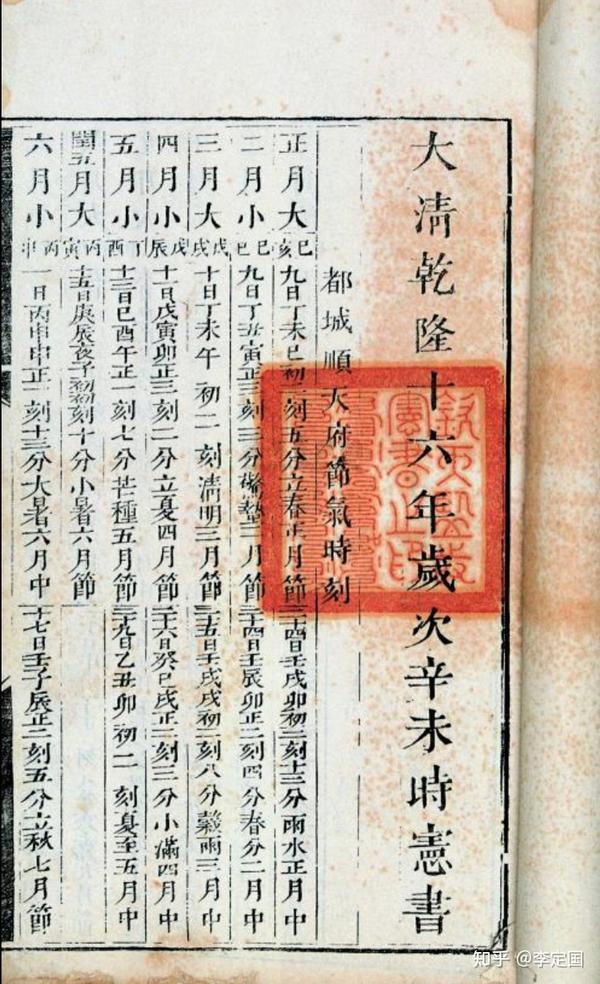 大清乾隆十六年歲次辛未時憲書
都城順天府節氣時刻
正月大己亥九日丁未巳初刻五分立春正月節二十四日壬戌卯初二刻十三分雨水正月中
二月小己巳九日丁丑寅正三刻二分驚蟄二月節二十四日壬辰卯正二刻四分春分二月中
三月大戊戌十日丁未午初二刻清明三月節二十五日壬戌戌初二刻八分穀雨三月中
四月小戊辰十一日戊寅卯正三刻二分立夏四月節二十六日癸巳戌正二刻三分小滿四月中
五月小丁酉十三日己酉午正一刻七分芒種五月節二十九日乙丑卯初二刻夏至五月中
閏五月大丙寅十五日庚辰夜子初初刻十分小暑六月節
六月小丙申一日丙申申正一刻十三分大暑六月中十七日壬子辰正二刻五分立秋七月節
知乎 @李定国